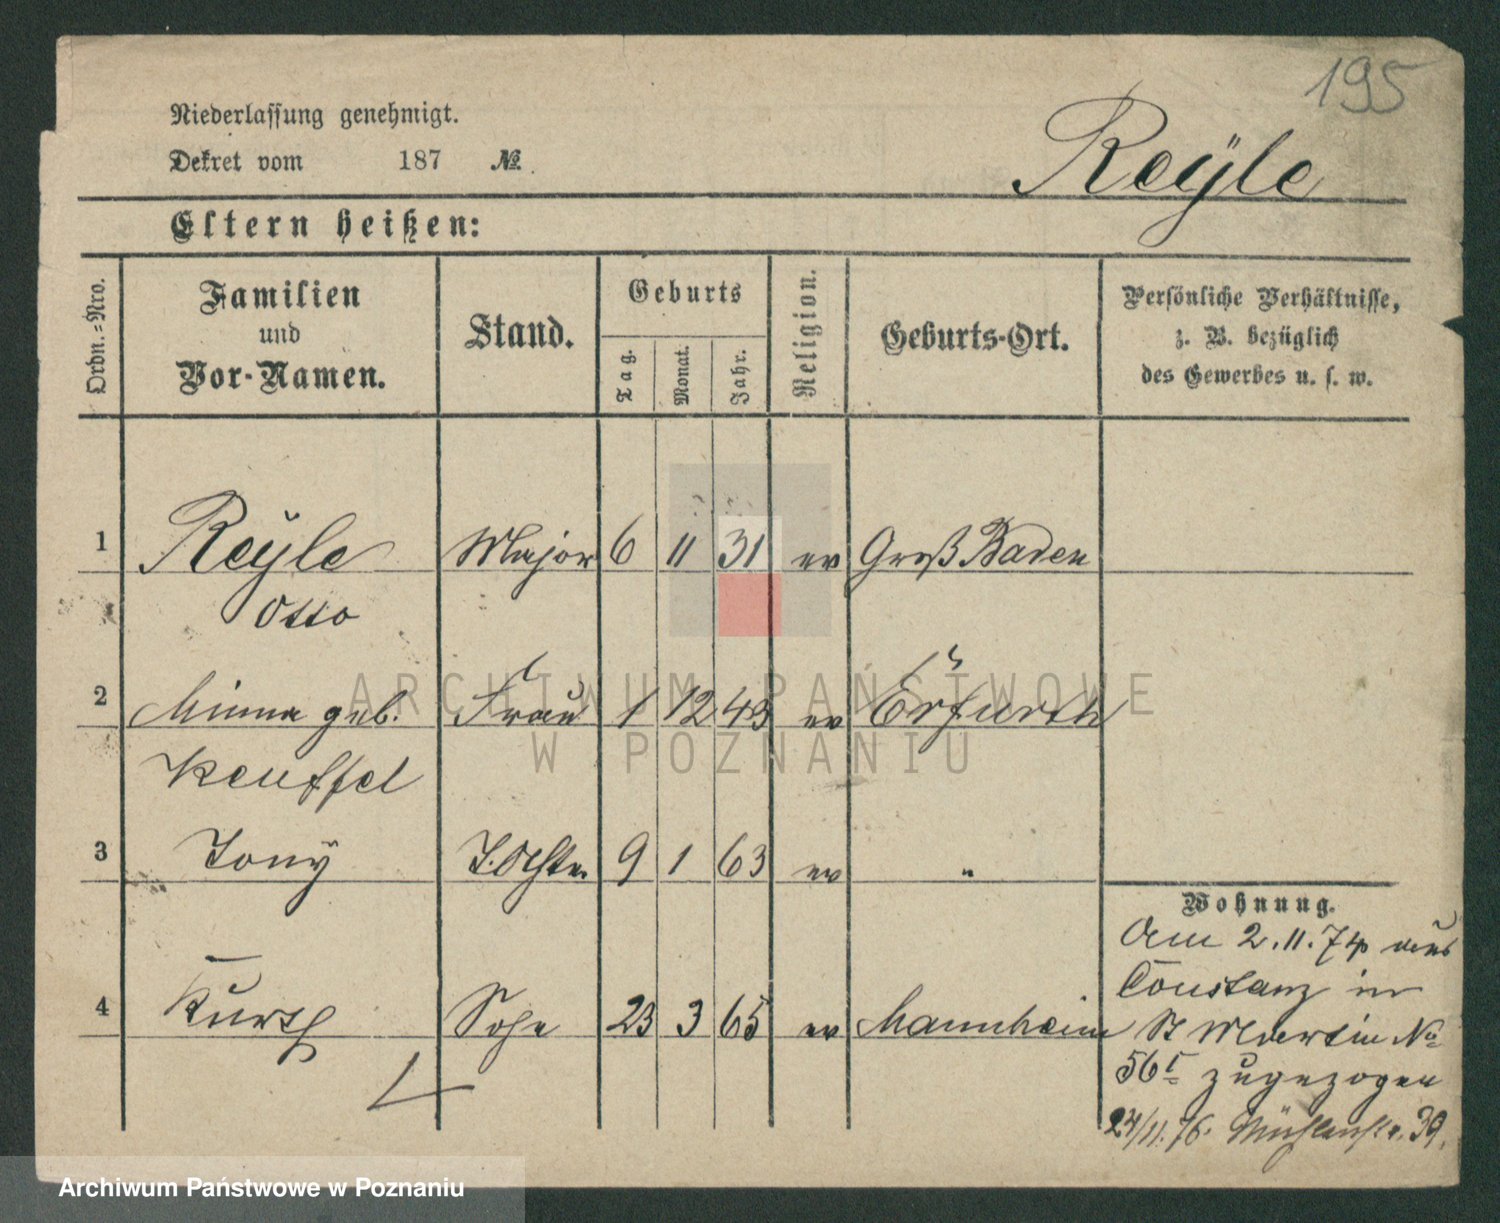 195
Niederlassung genehmigt.
Dekret vom 187 №
Reÿle
Eltern heißen:
Ordn.=Nro.
Familien und Vor-Namen.
Stand.
Geburts
Tag. Monat. Jahr.
Religion.
Geburts-Ort.
Persönliche Verhältnisse,
z. B. bezüglich
des Gewerbes u. s. w.
1 Reÿle Major 6 11 31 ev Groß Baden
Otto
2 Minna geb. Frau 1 12 43 ev Erfurth
Keuffel
3 Tony Tochter 9 1 63 ev "
4 Kurth Sohn 23 3 65 ev Mannheim
4
Wohnung.
Am 2.11.74 aus
Constanz in
St Martin No
56 I zugezogen
24/11.76. Mühlenstr. 39.
ARCHIWUM PAŃSTWOWE
W POZNANIU
Archiwum Państwowe w Poznaniu